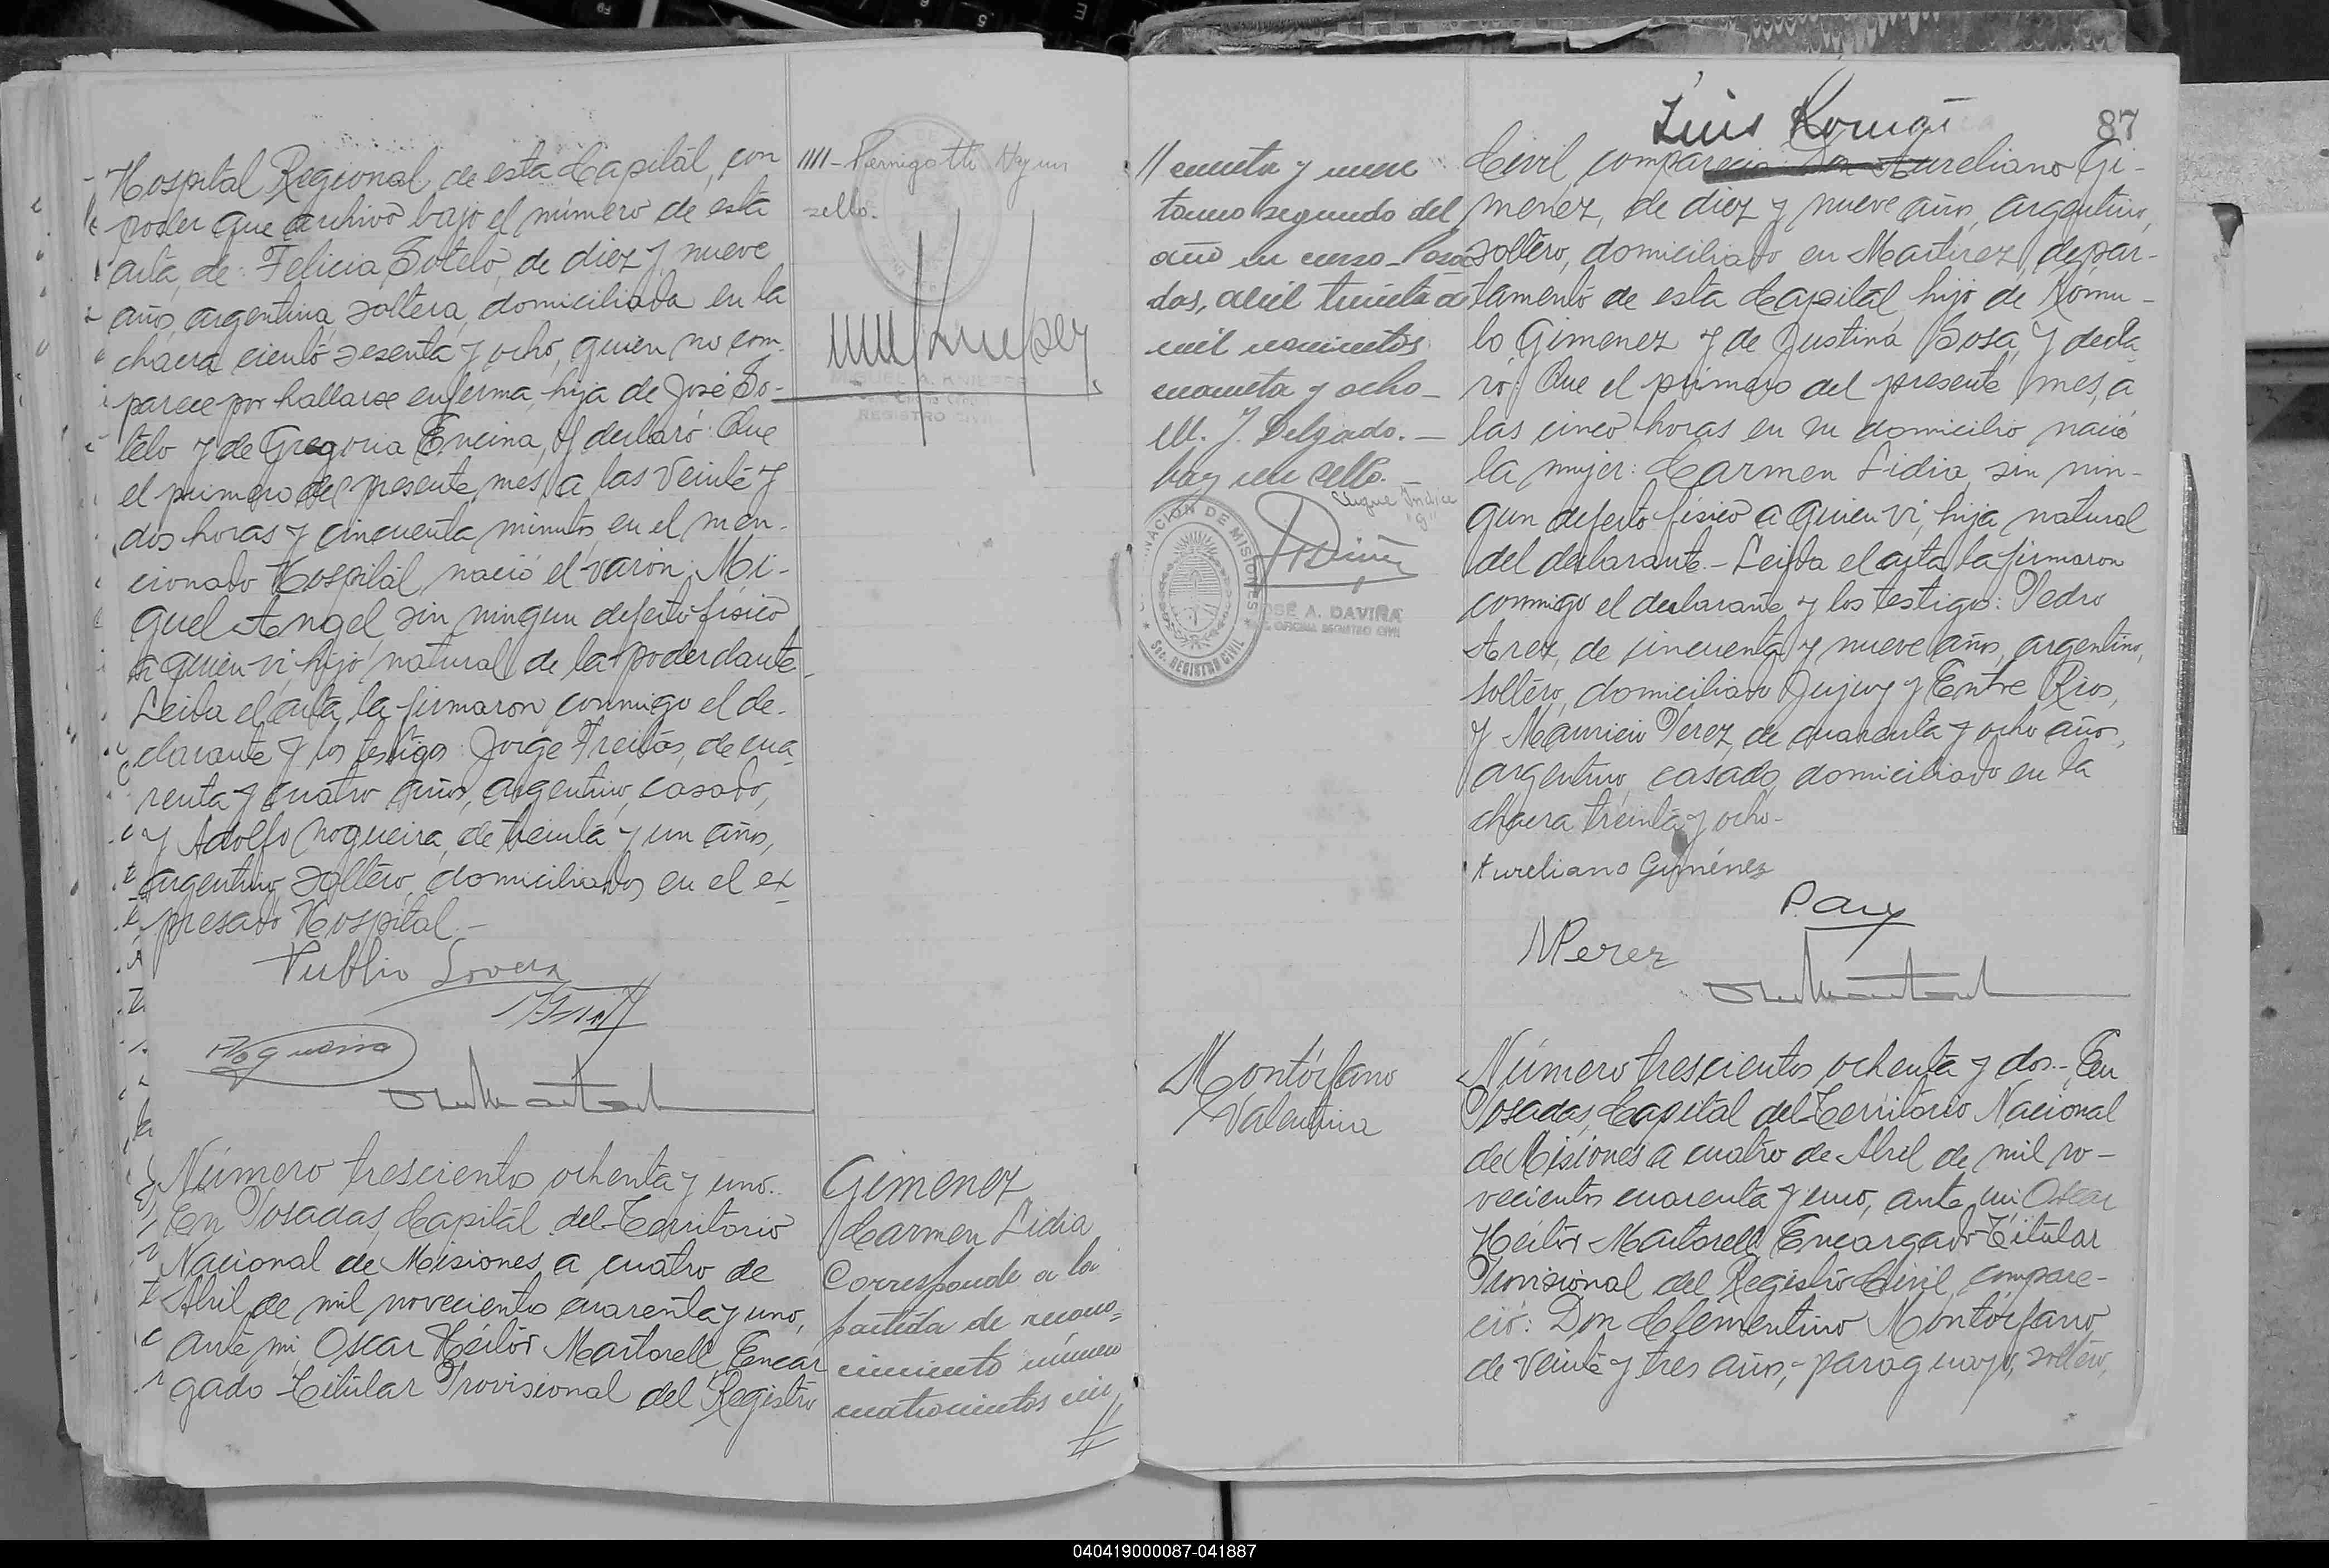 Hospital Regional de esta Capital, con
poder que archivo bajo el número de esta
acta, de: Felicia Sotelo, de diez y nueve
años, argentina, soltera, domiciliada en la
chacra ciento sesenta y ocho, quien no com-
parece por hallarse enferma, hija de José So-
telo y de Gregoria Encina, y declaró: Que
el primero del presente mes, a las veinte y
dos horas y cincuenta minutos, en el men-
cionado Hospital nació el varon: Mi-
guel Angel, sin ningun defecto fisico
a quien vi, hijo natural de la poderdante.
Leida el acta, la firmaron conmigo el de-
clarante y los testigos: Jorge Freitas, de cua-
renta y cuatro años, argentino, casado,
y Adolfo Nogueira, de treinta y un años,
argentino, soltero, domiciliados en el ex-
presado Hospital.-
Publio Lovera
ANogueira
Número trescientos ochenta y uno.-
En Posadas, Capital del Territorio
Nacional de Misiones, a cuatro de
Abril de mil novecientos cuarenta y uno,
ante mi, Oscar Héctor Martorell, Encar
gado Titular Provisional del Registro
IIII- Pernigotti Hay un
sello.
MIGUEL A. KNIEPER
REGISTRO CIVIL
Gimenez
Carmen Lidia
Corresponde a la
partida de recono-
cimiento número
cuatrocientos cin
//
// cuenta y nueve
tomo segundo del
año en curso- Posa
das, abril treinta de
mil novecientos
cuarenta y ocho-
M. J. Delgado.-
hay un sello.
Sigue Indice
"g"
NACION DE MISIONES
Sec. REGISTRO CIVIL
JOSÉ A. DAVIÑA
OFICINA REGISTRO CIVIL
Luis Roman
87
Civil, compareció: Don Aureliano Gi-
menez, de diez y nueve años, argentino,
soltero, domiciliado en Martirez, depar-
tamento de esta Capital hijo de Rómu-
lo Gimenez y de Justina Sosa, y decla
ró: Que el primero del presente mes, a
las cinco horas en su domicilio nació
la mujer: Carmen Lidia, sin nin-
gun defecto fisico a quien vi, hija natural
del declarante.- Leida el acta, la firmaron
conmigo el declarante y los testigos: Pedro
Arez, de cincuenta y nueve años, argentino,
soltero, domiciliado Jujuy y Entre Rios,
y Mauricio Perez, de cuarenta y ocho años,
argentino, casado, domiciliado en la
chacra treinta y ocho-
Aureliano Giménez
MPerez
Montórfano
Valentina
Número trescientos ochenta y dos.- En
Posadas, Capital del Territorio Nacional
de Misiones a cuatro de Abril de mil no-
vecientos cuarenta y uno, ante mi Oscar
Héctor Martorell Encargado Titular
Provisional del Registro Civil, compare-
ció: Don Clementino Montórfano,
de veinte y tres años,- paraguayo, soltero,
040419000087-041887